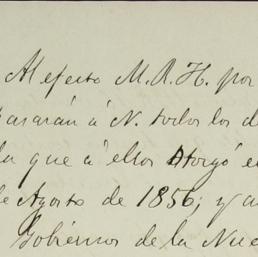 Al efecto M. A. H. por
pasarán á N. todos los de
la que á ellos otorgó e
de Agosto de 1856; y a
Gobiernos de la Nue